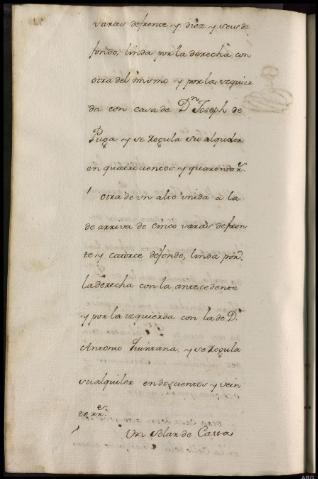 varas de frente y diez y seis de
fondo, linda por la derecha con
otra del mismo y por la yzquier
da con casa de Dn. Joseph de
Puga y se regula su alquiler
en quatrocientos y quarenta rs.
otra de un alto unida a la
de arriva de cinco varas de fren
te y catorce de fondo, linda por
la derecha con la antecedente
y por la izquierda con la de Dn.
Antonio Quintana, y se regula
su alquiler en doscientos y vein
te rrs.
Un solar de Casa